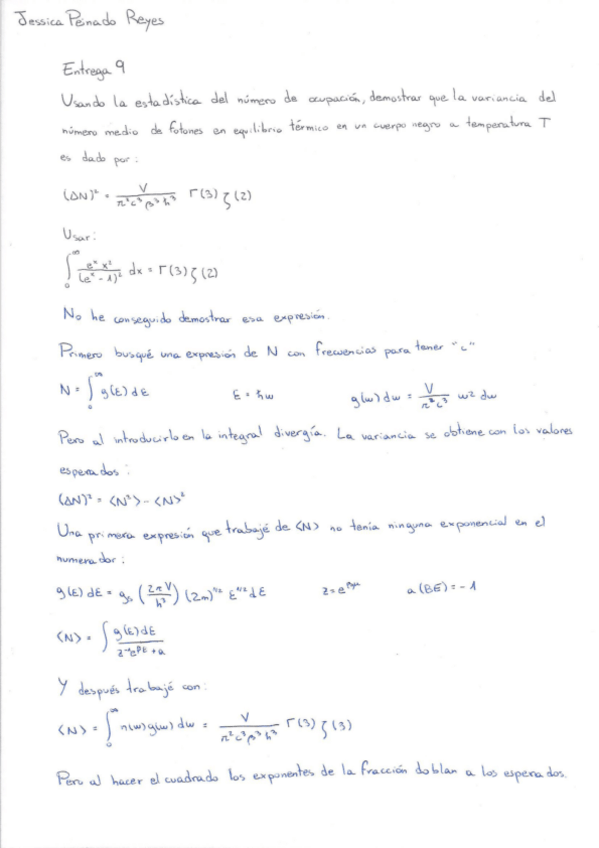 Jessica Peinado Reyes
Entrega 9
Usando la estadística del número de ocupación, demostrar que la variancia del
número medio de fotones en equilibrio térmico en un cuerpo negro a temperatura T
es dado por:
(ΔN)² = V / (π²c³β³ħ³) Γ(3) ζ(2)
Usar:
∫₀^∞ eˣ x² / (eˣ - 1)² dx = Γ(3) ζ(2)
No he conseguido demostrar esa expresión.
Primero busqué una expresión de N con frecuencias para tener "c"
N = ∫₀^∞ g(E) dE E = ħω g(ω) dω = V / (π²c³) ω² dω
Pero al introducirlo en la integral divergía. La variancia se obtiene con los valores
esperados:
(ΔN)² = ⟨N²⟩ - ⟨N⟩²
Una primera expresión que trabajé de ⟨N⟩ no tenía ninguna exponencial en el
numerador:
g(E) dE = gₛ (2πV / h³) (2m)^(3/2) E^(1/2) dE z = e^(βμ) a (BE) = -1
⟨N⟩ = ∫ g(E) dE / (z⁻¹e^(βE) + a)
Y después trabajé con:
⟨N⟩ = ∫₀^∞ n(ω) g(ω) dω = V / (π²c³β³ħ³) Γ(3) ζ(3)
Pero al hacer el cuadrado los exponentes de la fracción doblan a los esperados.